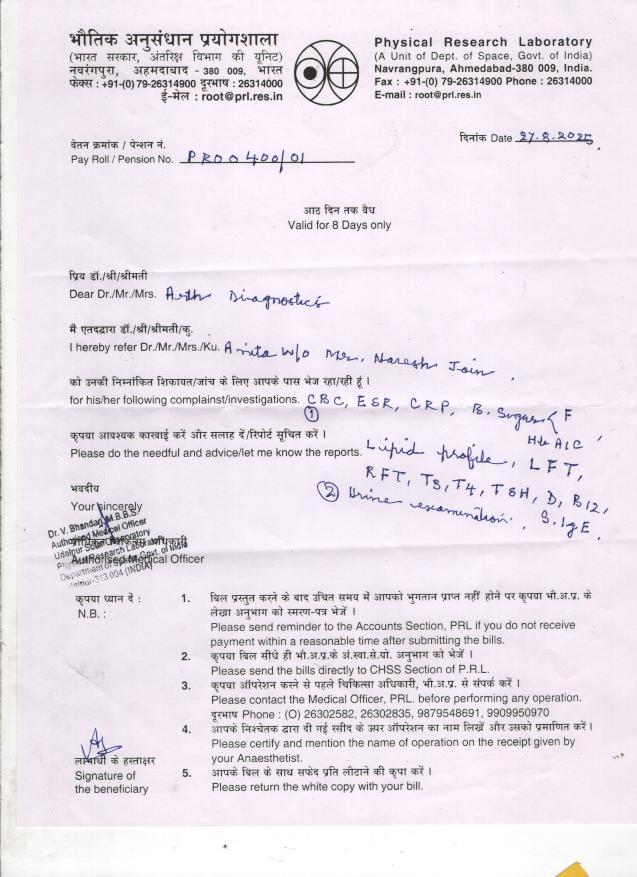 भौतिक अनुसंधान प्रयोगशाला
(भारत सरकार, अंतरिक्ष विभाग की यूनिट)
नवरंगपुरा, अहमदाबाद - 380 009, भारत
फेक्स : +91-(0) 79-26314900 दूरभाष : 26314000
ई-मेल : root@prl.res.in
Physical Research Laboratory
(A Unit of Dept. of Space, Govt. of India)
Navrangpura, Ahmedabad-380 009, India.
Fax : +91-(0) 79-26314900 Phone : 26314000
E-mail : root@prl.res.in
दिनांक Date 27.8.2025
वेतन क्रमांक / पेन्शन नं.
Pay Roll / Pension No. PR00400/01
आठ दिन तक वैध
Valid for 8 Days only
प्रिय डॉ./श्री/श्रीमती
Dear Dr./Mr./Mrs. Arth Diagnostics
मैं एतदद्वारा डॉ./श्री/श्रीमती/कु.
I hereby refer Dr./Mr./Mrs./Ku. Anita W/o Mr. Naresh Jain,
को उनकी निम्नांकित शिकायत/जांच के लिए आपके पास भेज रहा/रही हूं ।
for his/her following complainst/investigations. CBC, ESR, CRP, B. Sugar F
①
Hb A1C,
कृपया आवश्यक कारवाई करें और सलाह दें/रिपोर्ट सूचित करें ।
Please do the needful and advice/let me know the reports. Lipid profile, LFT,
RFT, T3, T4, TSH, D, B12,
② Urine examination, S. IgE
भवदीय
Your sincerely
Dr. V. Bhandari M.B.B.S.
Authorised Medical Officer
Udaipur Solar Observatory
Physical Research Laboratory
Department of Space Govt. of India
Udaipur-313 004 (INDIA)
Authorised Medical Officer
कृपया ध्यान दें :
N.B. :
1. बिल प्रस्तुत करने के बाद उचित समय में आपको भुगतान प्राप्त नहीं होने पर कृपया भी.अ.प्र. के
लेखा अनुभाग को स्मरण-पत्र भेजें ।
Please send reminder to the Accounts Section, PRL if you do not receive
payment within a reasonable time after submitting the bills.
2. कृपया बिल सीधे ही भी.अ.प्र.के अं.स्वा.से.यो. अनुभाग को भेजें ।
Please send the bills directly to CHSS Section of P.R.L.
3. कृपया ऑपरेशन करने से पहले चिकित्सा अधिकारी, भी.अ.प्र. से संपर्क करें ।
Please contact the Medical Officer, PRL. before performing any operation.
दूरभाष Phone : (O) 26302582, 26302835, 9879548691, 9909950970
4. आपके निश्चेतक द्वारा दी गई रसीद के उपर ऑपरेशन का नाम लिखें और उसको प्रमाणित करें ।
Please certify and mention the name of operation on the receipt given by
your Anaesthetist.
5. आपके बिल के साथ सफेद प्रति लौटाने की कृपा करें ।
Please return the white copy with your bill.
लाभार्थी के हस्ताक्षर
Signature of
the beneficiary